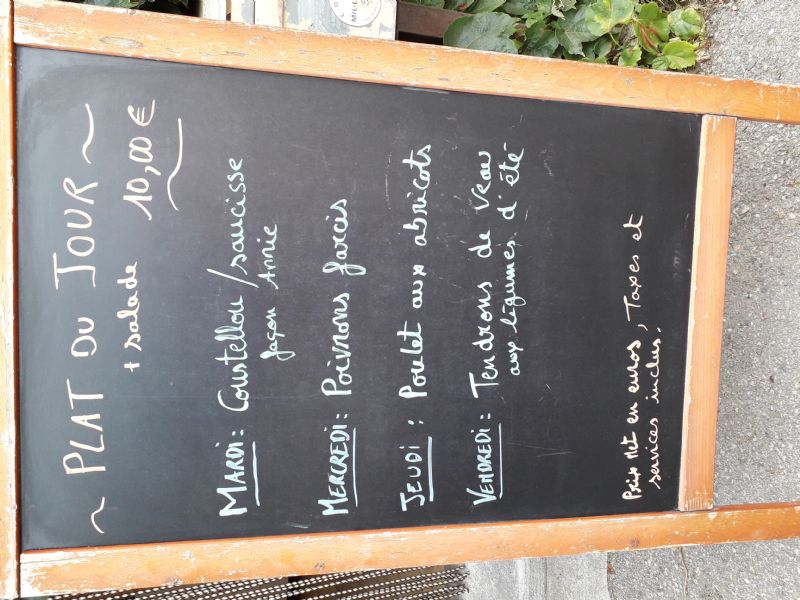 ~ PLAT DU JOUR ~
+ salade 10,00 €
MARDI : Coustellou / saucisse
façon Annie
MERCREDI : Poivrons farcis
JEUDI : Poulet aux abricots
VENDREDI : Tendrons de Veau
aux légumes d'été
Prix net en euros, Taxes et
services inclus.